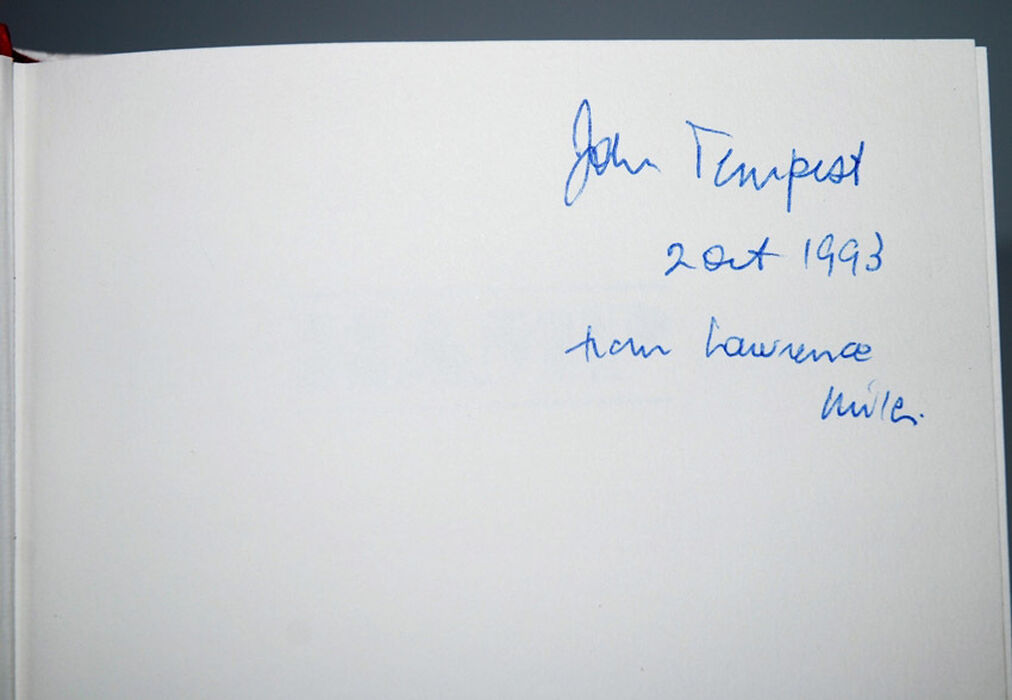 John Tempest
2 Oct 1993
from Lawrence